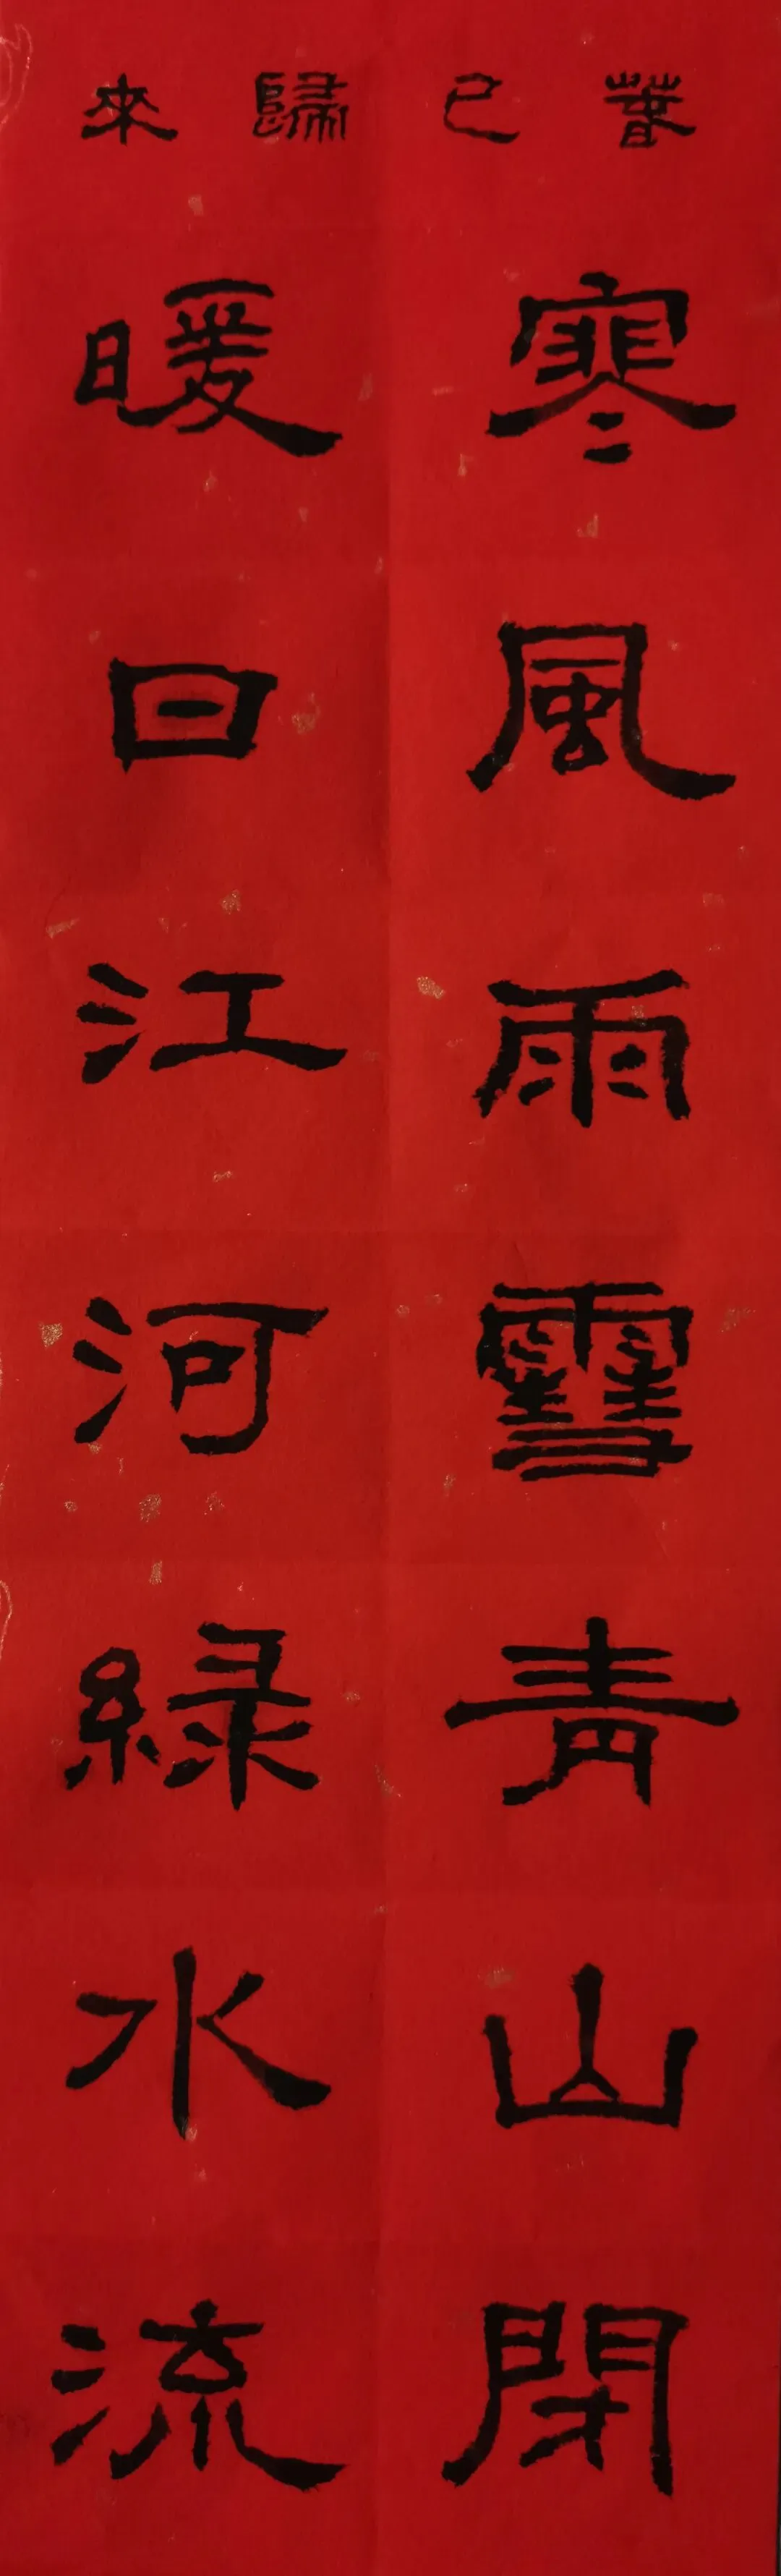 春已歸來
寒風雨雪青山閉
暖日江河綠水流